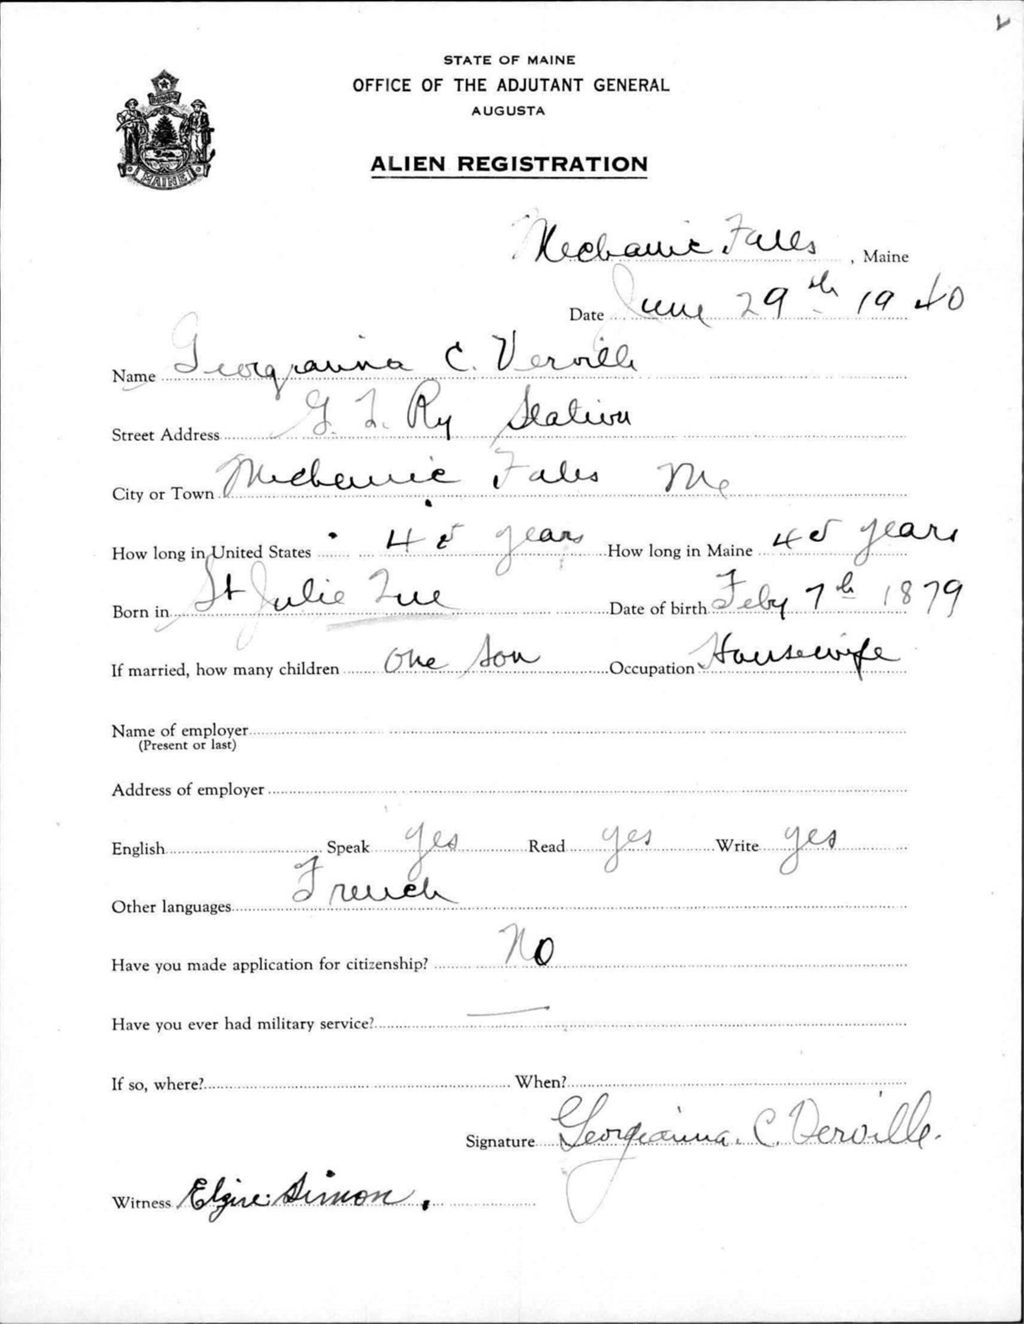 STATE OF MAINE
OFFICE OF THE ADJUTANT GENERAL
AUGUSTA
MAINE
ALIEN REGISTRATION
Mechanic Falls, Maine
Date June 29th 1940
Name Georgianna C. Verville
Street Address G. T. Ry Station
City or Town Mechanic Falls Me
How long in United States 45 years How long in Maine 45 years
Born in St Julie Que Date of birth Feby 7th 1879
If married, how many children One Son Occupation Housewife
Name of employer
(Present or last)
Address of employer
English Speak yes Read yes Write yes
Other languages French
Have you made application for citizenship? No
Have you ever had military service? —
If so, where? When?
Signature Georgianna. C. Verville.
Witness Simon.